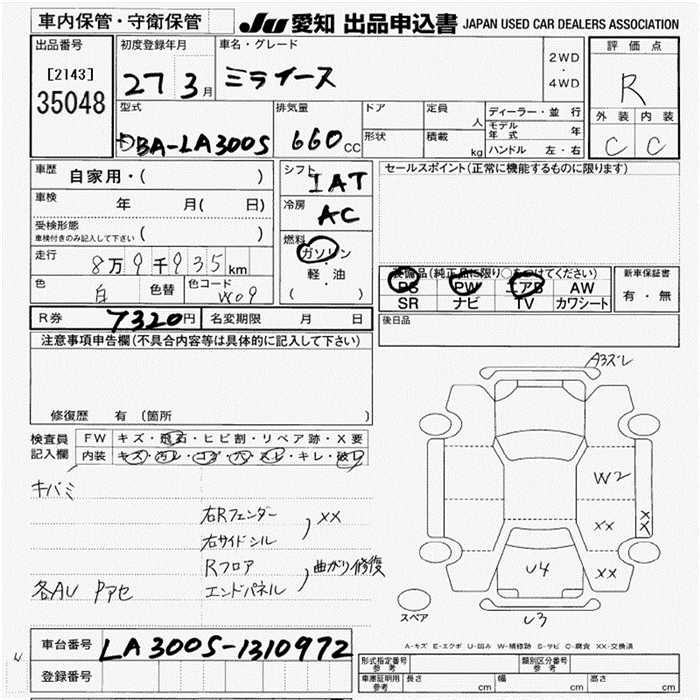 車内保管・守衛保管
JU 愛知 出品申込書 JAPAN USED CAR DEALERS ASSOCIATION
出品番号
[2143]
35048
初度登録年月
27 3月
車名・グレード
ミライース
2WD
・
4WD
評価点
R
外装 内装
C C
型式
DBA-LA300S
排気量
660cc
ドア
形状
定員 人
積載 kg
ディーラー・並行
モデル年式 年
ハンドル 左・右
車歴 自家用・( )
車検 年 月( 日)
受検形態
車検付きのみ記入して下さい ( )
走行 8万9千935km
色 白 色替 色コード W09
シフト IAT
冷房 AC
燃料
ガソリン
・
軽・油
( )
セールスポイント(正常に機能するものに限ります)
装備品(純正品に限り○をつけてください)
PS PW エアB AW
SR ナビ TV カワシート
新車保証書
有・無
R券 7320円 名変期限 月 日
後日品
注意事項申告欄(不具合内容等は具体的に記入して下さい)
修復歴 有 (箇所
検査員記入欄
FW キズ・飛石・ヒビ割・リペア跡・X要
内装 キズ・汚レ・コゲ・穴・スレ・キレ・破レ
キバミ
右Rフェンダー
右サイドシル , XX
Rフロア
エンドパネル , 曲がり修復
各AU Pアセ
A3ズレ
W2
XX
XX
XX
U4
U3
スペア
A-キズ E-エクボ U-凹み W-補修跡 S-サビ C-腐食 XX-交換済
車台番号 LA300S-1310972
登録番号
型式指定番号 参考
類別区分番号 参考
車庫証明用 参考 長さ cm 幅 cm 高さ cm